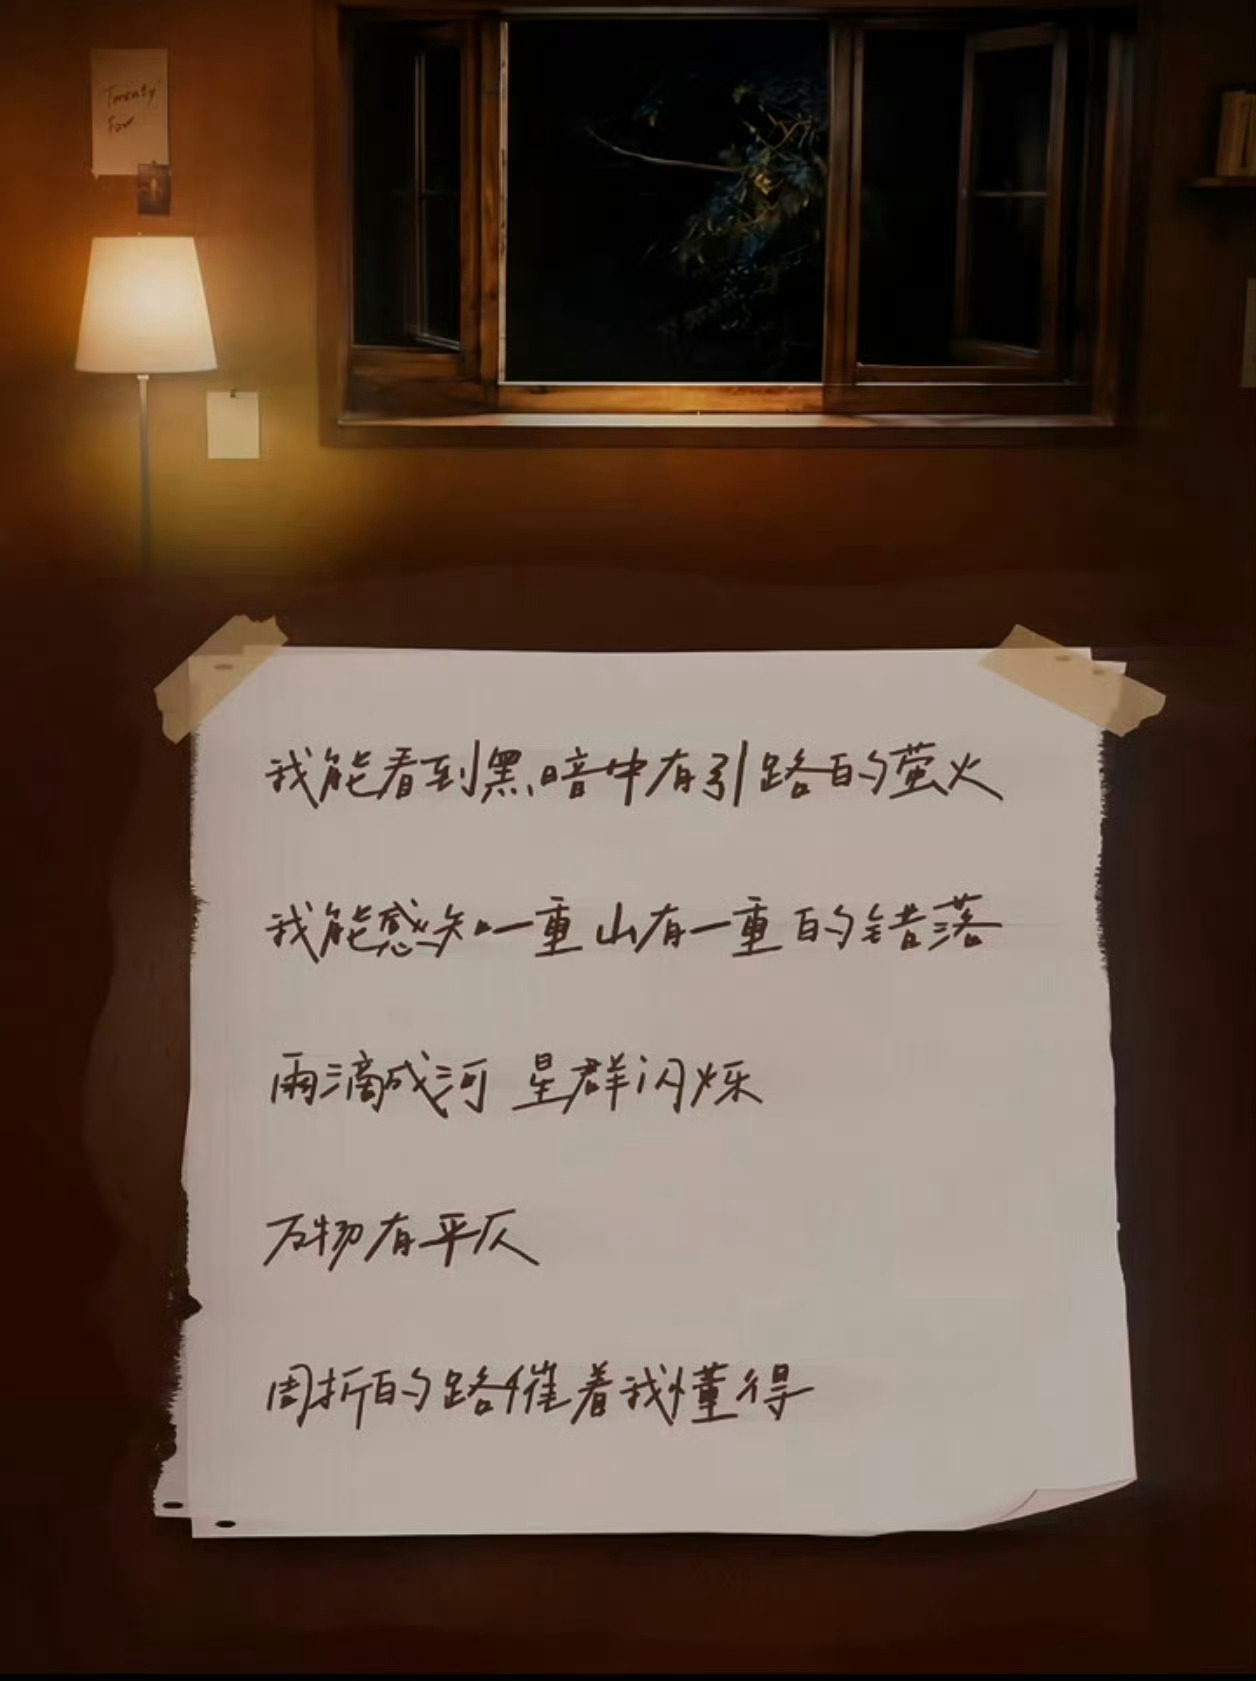 Twenty
Four
我能看到黑暗中有引路的萤火
我能感知一重山有一重的错落
雨滴成河 星群闪烁
万物有平仄
周折的路催着我懂得